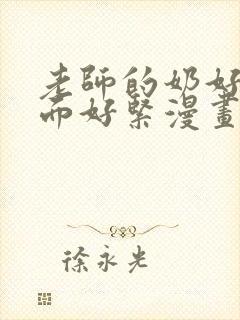 老師的奶好
而好緊漫畫
徐永光